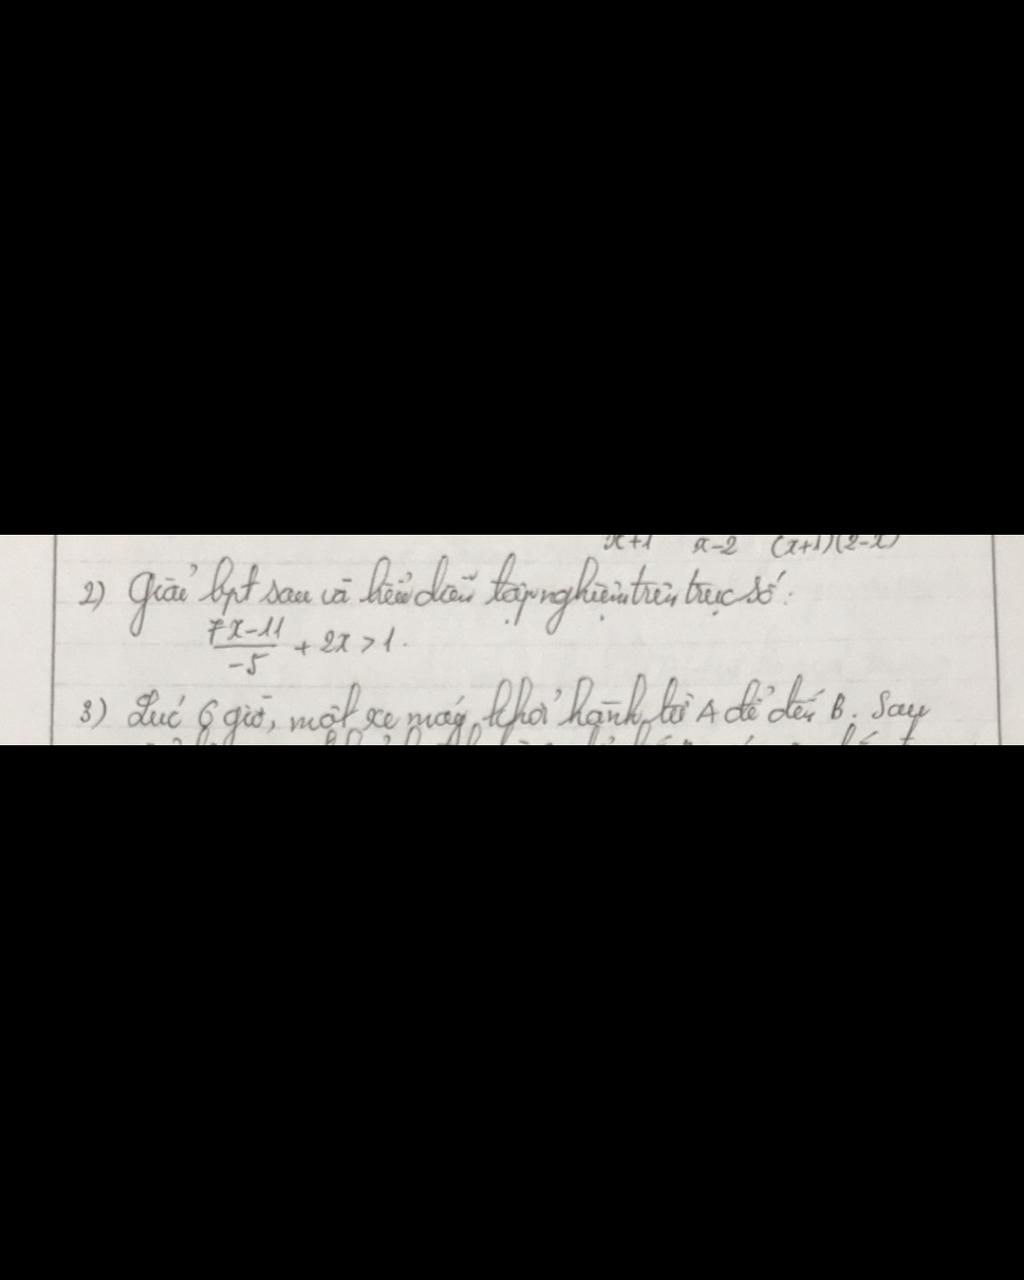 x+1 x-2 (x+1)(2-x)
2) Giải bpt sau và biểu diễn tập nghiệm trên trục số:
7x-11
-5 + 2x > 1.
3) Lúc 6 giờ, một xe máy khởi hành từ A để đến B. Sau